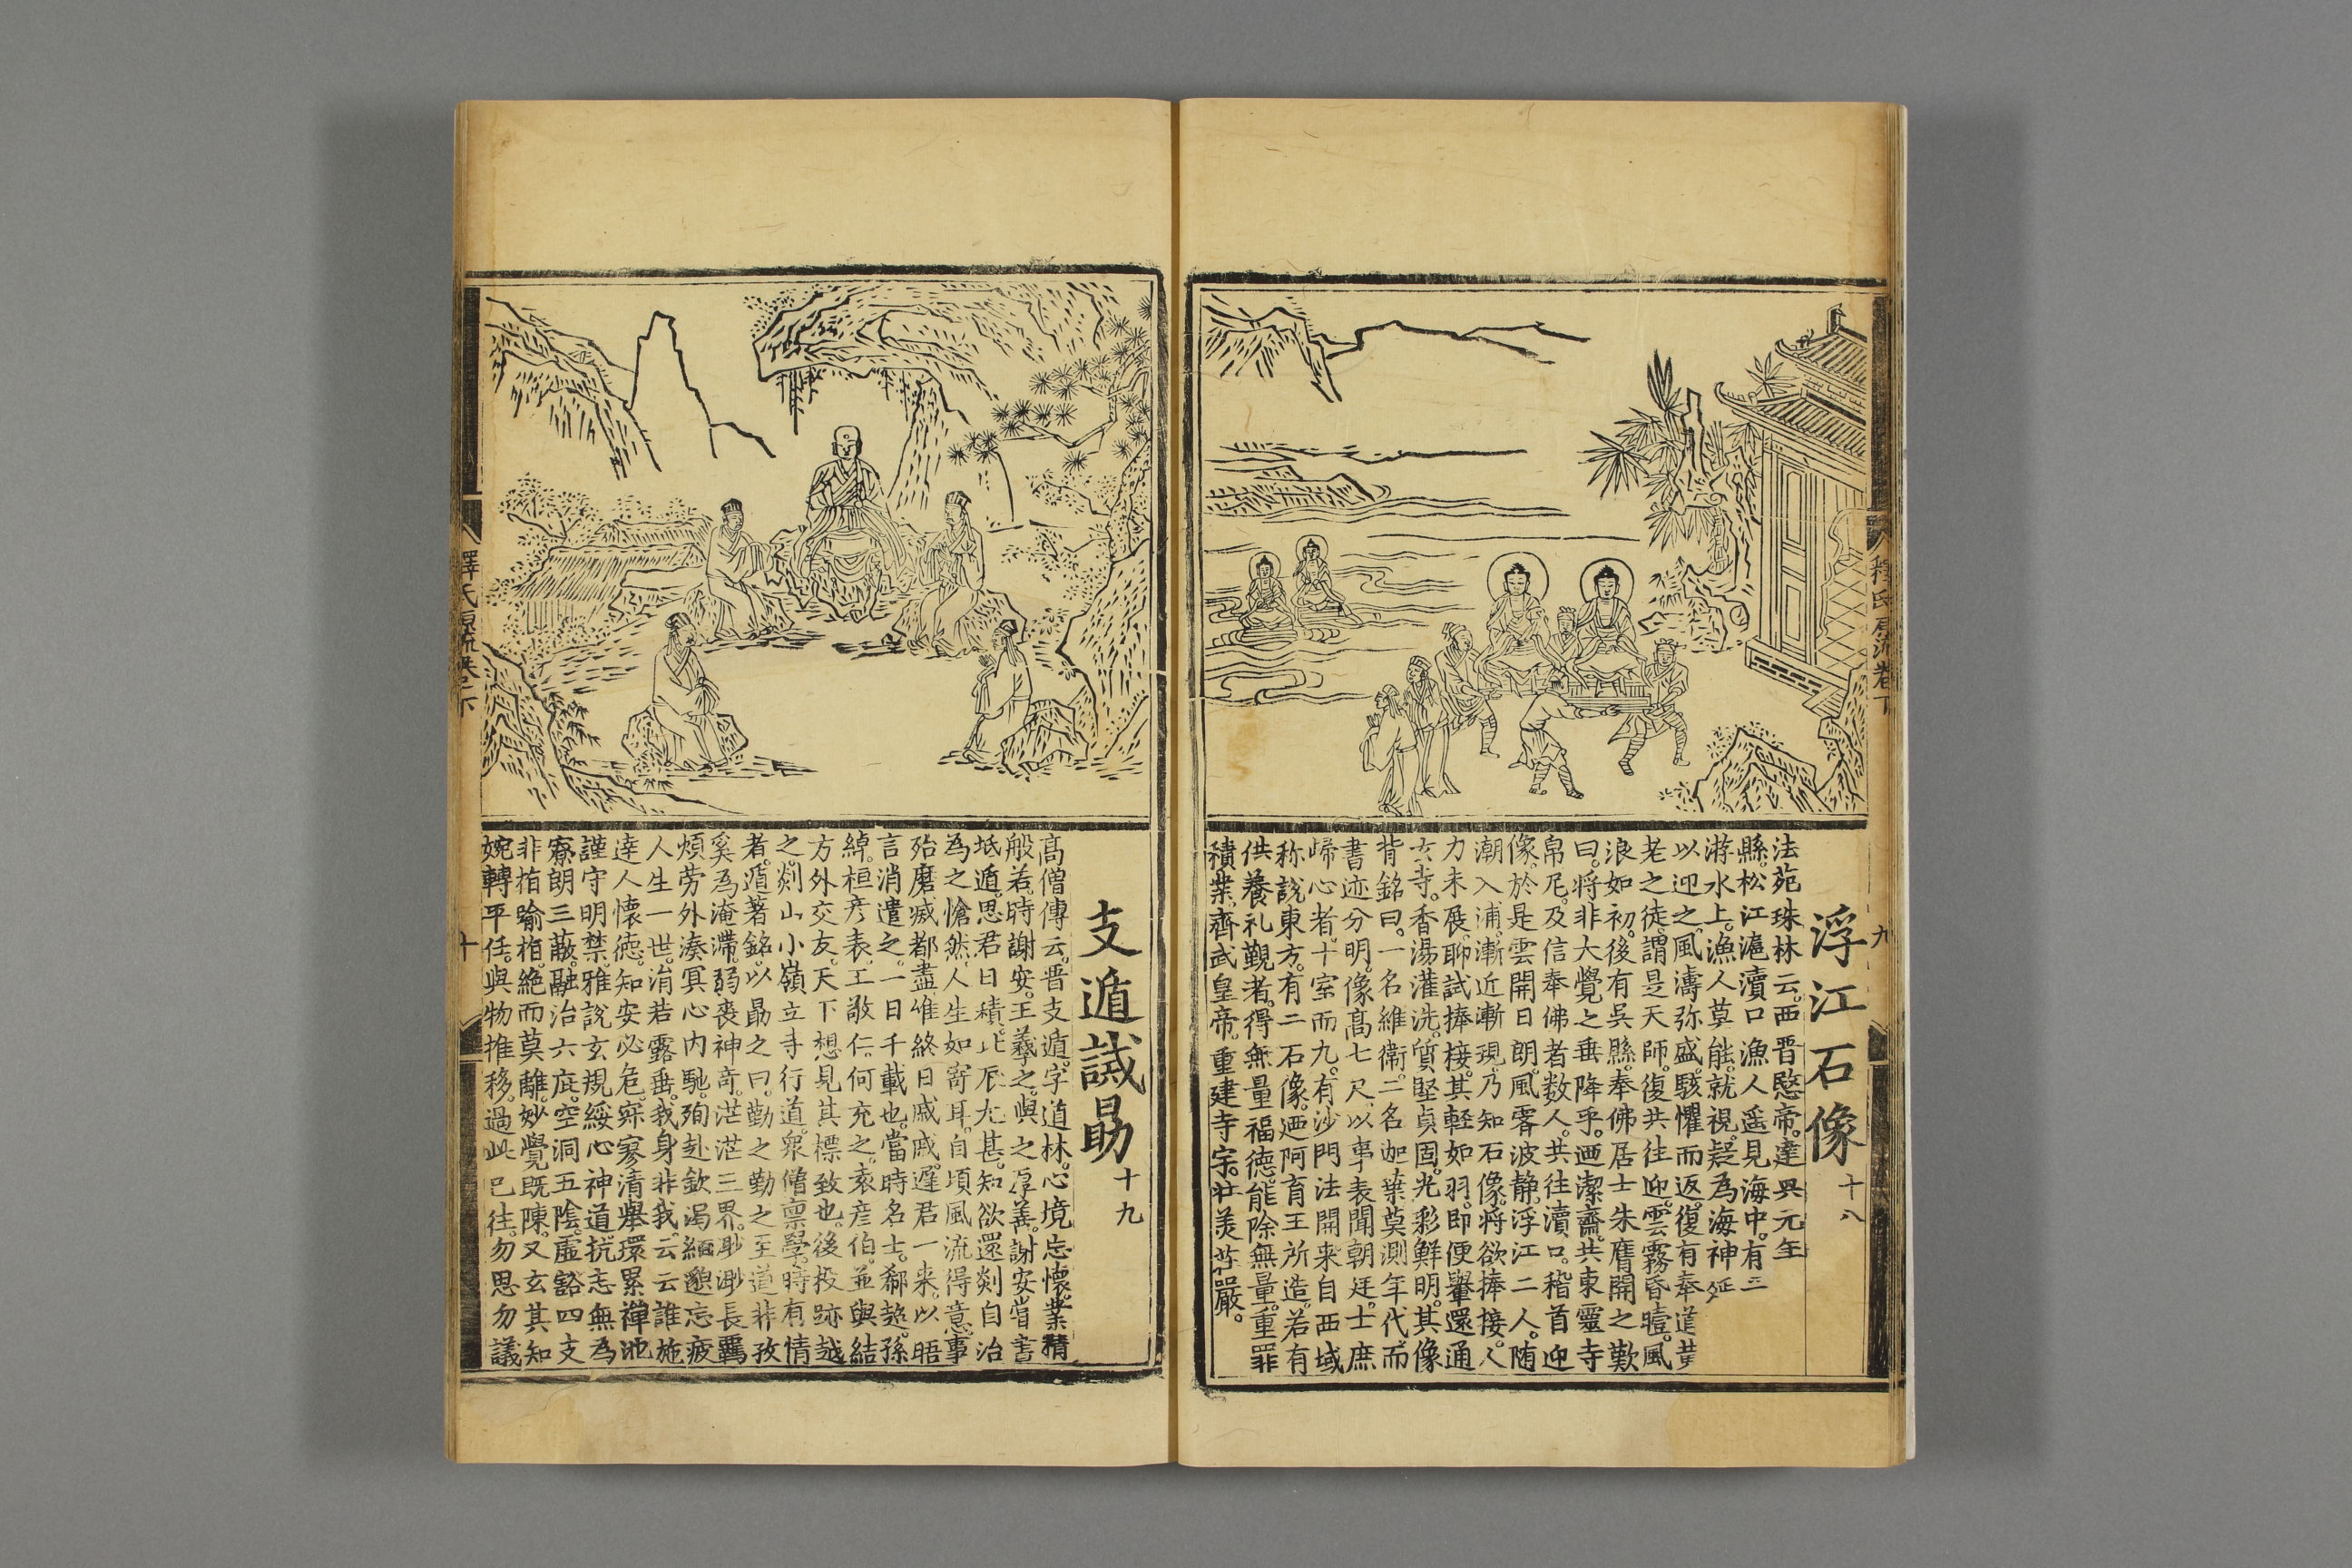 釋氏源流卷下
九
浮江石像 十八
法苑珠林云。西晋愍帝。建興元年
縣。松江滬瀆口漁人遥見海中。有三
游水上。漁人莫能就視。疑為海神延
以迎之。風濤弥盛。駭懼而返。復有奉道黄
老之徒。謂是天師。復共往迎。雲霧昏曀。風
浪如初。後有吳縣。奉佛居士朱膺聞之歎
曰。將非大覺之垂降乎。迺潔齋共東靈寺
帛尼。及信奉佛者数人。共往瀆口。稽首迎
像。於是雲開日朗。風霽波静。浮江二人。随
潮入浦。漸近漸現。乃知石像。將欲捧接。人
力未展聊試捧接。其軽如羽。即便轝還通
玄寺。香湯灌洗。質堅貞固。光彩鮮明。其像
背銘曰。一名維衛。二名迦葉。莫測年代。而
書迹分明。像髙七尺。以事表聞朝廷。士庶
㱕心者。十室而九。有沙門法開来自西域
称說東方。有二石像。迺阿育王所造。若有
供養礼覲者。得無量福德。能除無量。重罪
積業。齊武皇帝。重建寺宗。壮美荘嚴。
支遁誡勗 十九
髙僧傳云。晋支遁。字道林。心境忘懷。業精
般若。時謝安。王羲之。與之厚善。謝安甞書
坻遁。思君日積。此辰尤甚。知欲還剡自治
為之愴然。人生如寄耳。自頃風流得意。事
殆磨滅都盡。惟終日慼慼。遲君一来。以晤
言消遣之。一日千載也。當時名士。郗超。孫
綽。桓彦表。王敬仁。何充之。袁彦伯。並與結
方外交友。天下想見其標致也。後投跡越
之剡山小嶺立寺行道。衆僧禀學。時有情
者。遁著銘。以勗之曰。勤之勤之至道非孜
奚為淹滯。弱喪神竒。茫茫三界。眇眇長覊
煩劳外凑冥心内馳。殉赴欽渇緬邈忘疲
人生一世。涓若露垂。我身非我。云云誰施
達人懷德。知安必危。寂寥清舉。環累禅池
謹守明禁。雅說玄規綏心神道。抗志無為
寮朗三蔽。融治六疵。空洞五陰。虚豁四支
非指喻指。絶而莫離。妙覺既陳。又玄其知
婉轉平任。與物推移。過此已往。勿思勿議
釋氏源流卷下
十